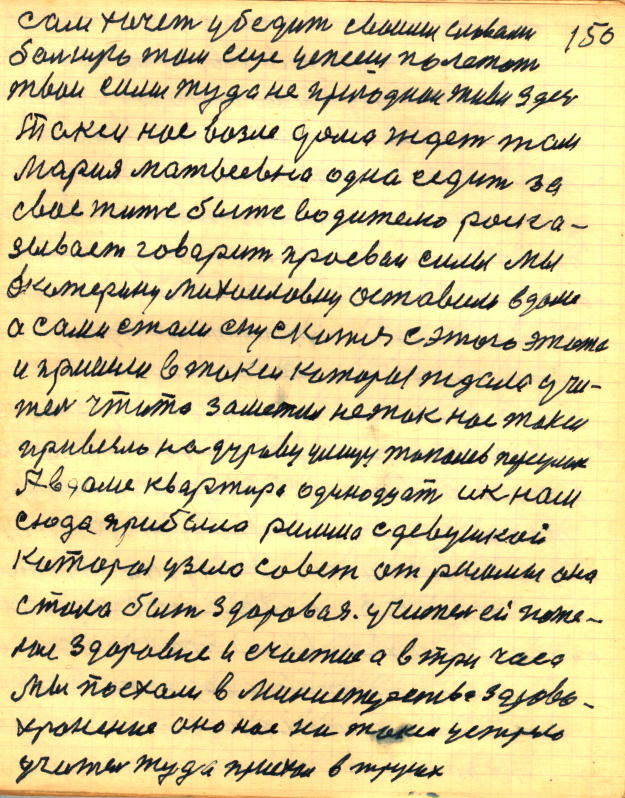 сам хочет убедит своими словами 150
там еще
твои силы туда не пригодной живи здес
Такси нас возле дома ждет там
Мария матвеевна одна седит за
свое жите быте водителю раска-
зывает говарит про сваи силы мы
Екатерину Михаиловну оставили в доме
а сами стали спускатися с этого этажа
и пришли в такси которы ждала учи-
теля чтото заметил не так нас такси
привезло на улицу
А в доме квартира одинодцат и к нам
сюда прибыла римма с девушкой
Которы узела совет от риммы она
стала быт здоровая. учител ей поже-
лал здоровие и счастие а в три часа
мы поехали в министерство здраво-
хронение оно нас на такси
учител туда приехал в трусих